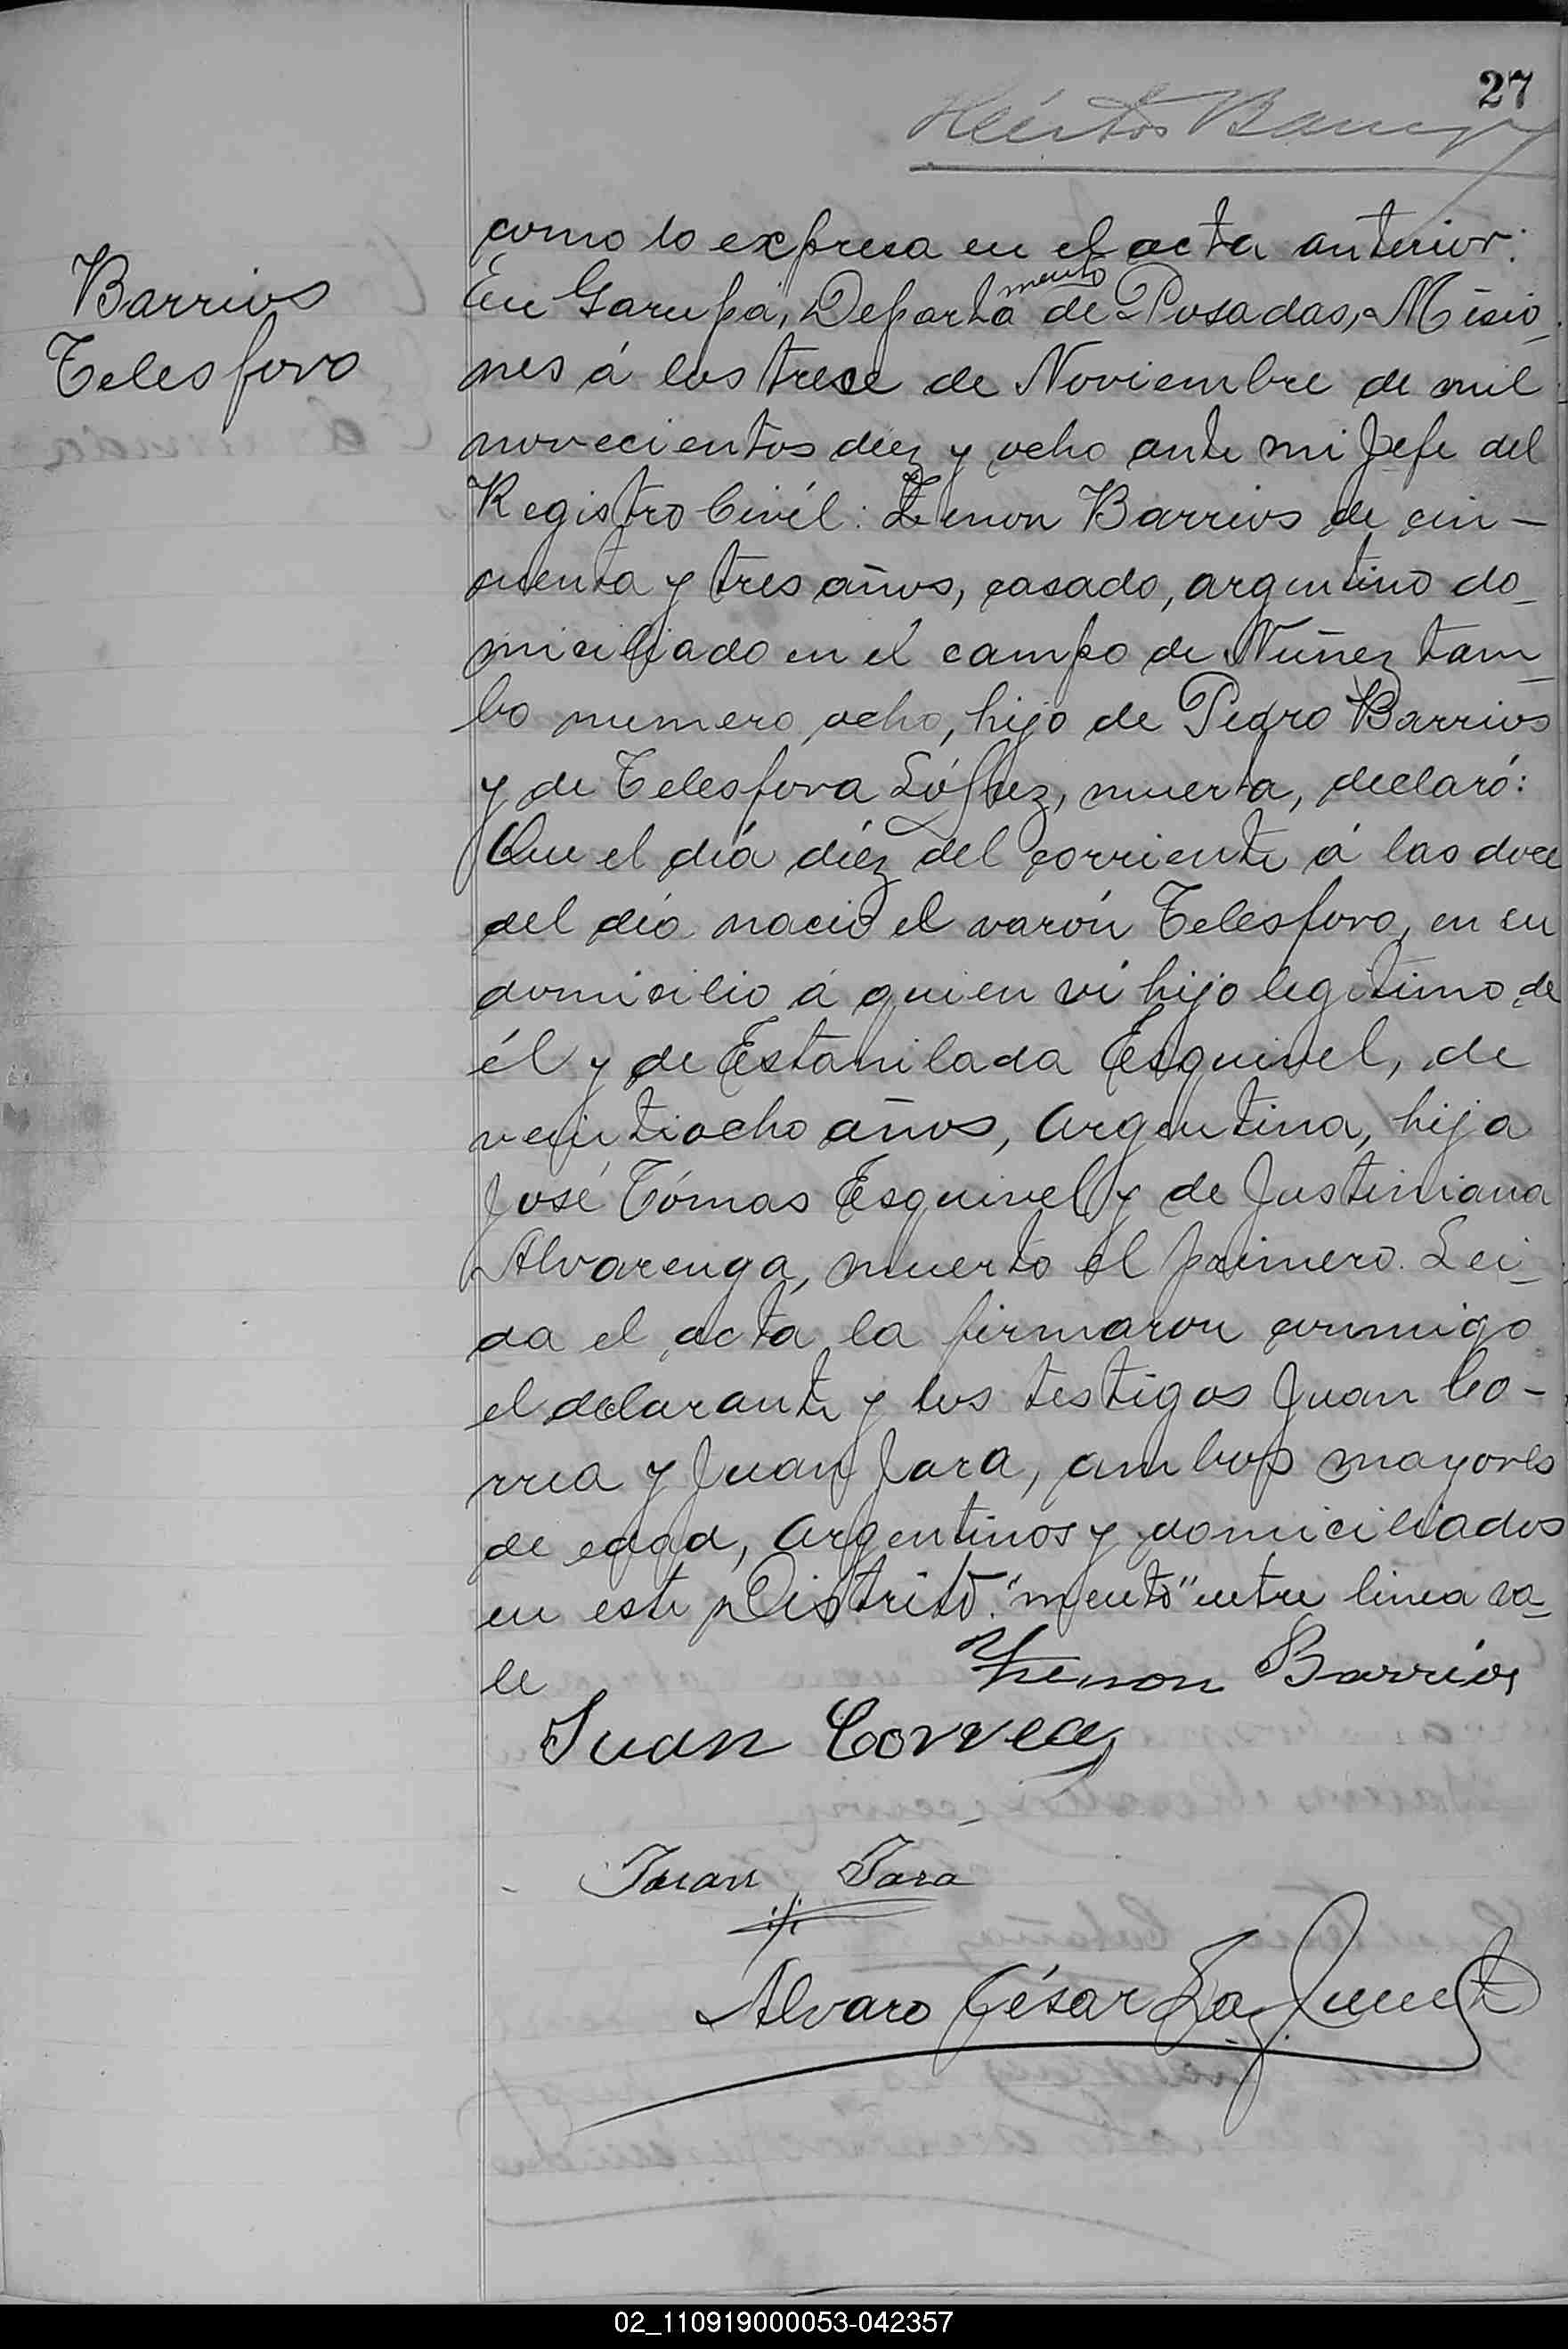 27
Barrios
Telesforo
como lo expresa en el acta anterior:
En Garupá, Departamento de Posadas, Misio_
nes á los trece de Noviembre de mil
novecientos diez y ocho ante mi Jefe del
Registro Civil: Zenon Barrios de cin-
cuenta y tres años, casado, argentino do_
miciliado en el campo de Nuñez tam_
bo numero ocho, hijo de Pedro Barrios
y de Telesfora López, muerta, declaró:
Que el día diéz del corriente á las doce
del dia nació el varón Telesforo, en su
domicilio á quien vi hijo legitimo de
él y de Estanilada Esquivel, de
veintiocho años, Argentina, hija
José Tómas Esquivel y de Justiniana
Alvarenga, muerto el primero. Lei_
da el acta la firmaron conmigo
el delarante y los testigos Juan Co-
rrea y Juan Jara, ambos mayores
de edad, Argentinos y domiciliados
en este Distrito. "mento" entre linea va_
le
Zenon Barrios
Juan Correa
Juan Jara
Alvaro César
02_110919000053-042357